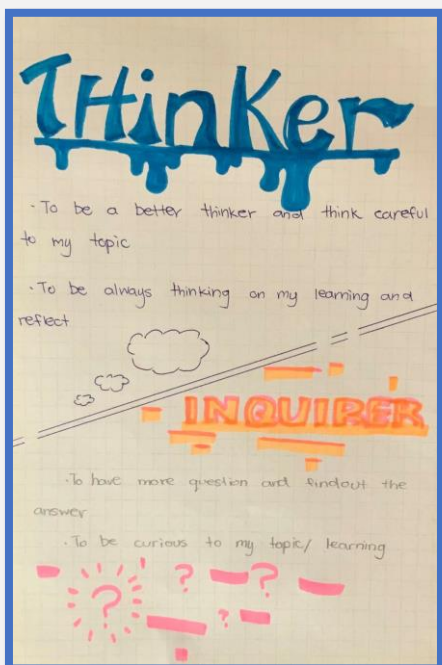 THinKer
· To be a better thinker and think careful
to my topic
· To be always thinking on my learning and
reflect
INQUIRER
· To have more question and findout the
answer
· To be curious to my topic/ learning
? ? ? ?